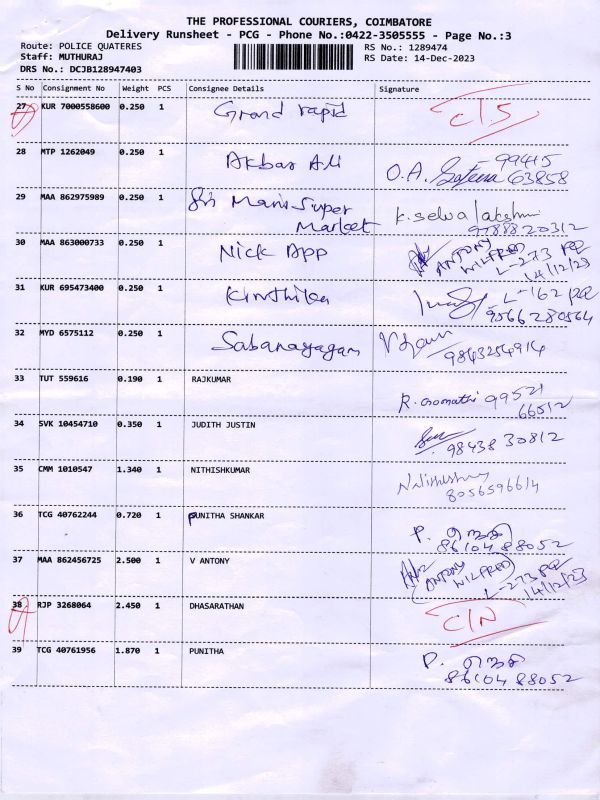 THE PROFESSIONAL COURIERS, COIMBATORE
Delivery Runsheet - PCG - Phone No.:0422-3505555 - Page No.:3
Route: POLICE QUATERES RS No.: 1289474
Staff: MUTHURAJ RS Date: 14-Dec-2023
DRS No.: DCJB128947403
S No Consignment No Weight PCS Consignee Details Signature
27 KUR 7000558600 0.250 1 Grand rapid C/S
28 MTP 1262049 0.250 1 Akbar Ali O.A. 99415
63858
29 MAA 862975989 0.250 1 Sri Mani Super K. Selva lakshmi
Market 9788820312
30 MAA 863000733 0.250 1 Nick App ANTONY
WILFRED L-273 PQ
14/12/23
31 KUR 695473400 0.250 1 Kiruthika L-162 PQ
9566280564
32 MYD 6575112 0.250 1 Sabanayagam
9843254914
33 TUT 559616 0.190 1 RAJKUMAR
R. Gomathi 99521
66512
34 SVK 10454710 0.350 1 JUDITH JUSTIN
98438 30812
35 CMM 1010547 1.340 1 NITHISHKUMAR
8056596614
36 TCG 40762244 0.720 1 PUNITHA SHANKAR
P.
86104 88052
37 MAA 862456725 2.500 1 V ANTONY
(ANTONY WILFRED)
L-273 PQ
14/12/23
38 RJP 3268064 2.450 1 DHASARATHAN C/N
39 TCG 40761956 1.870 1 PUNITHA P.
86104 88052